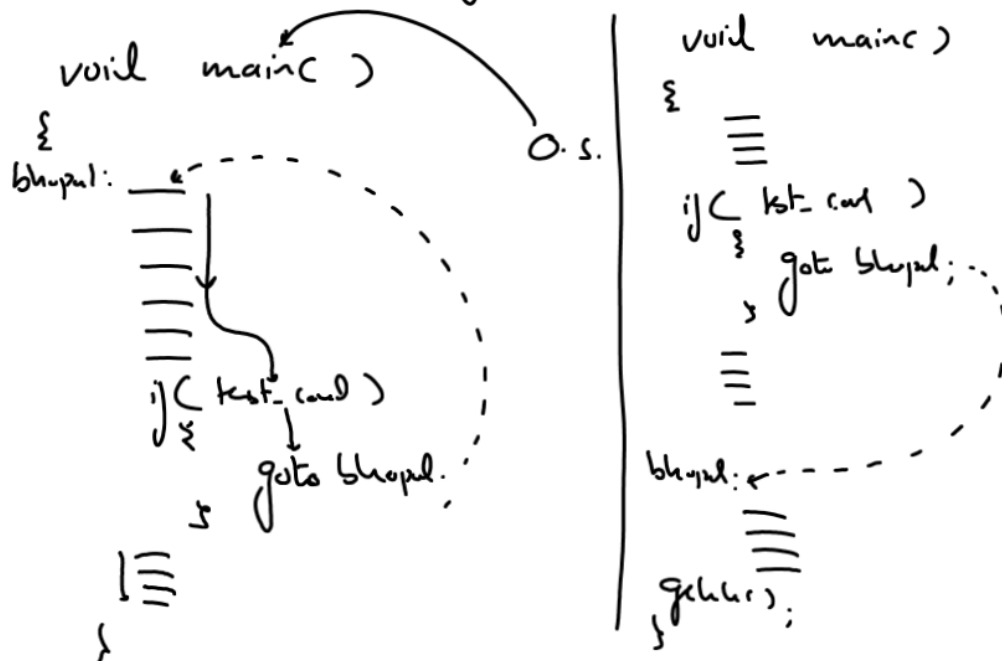 void main( )
{
O.S.
bhopal:
if( test_cond )
{
goto bhopal.
}
}
void main( )
{
if( tst_cond )
{
goto bhopal;
}
bhopal:
getch();
}